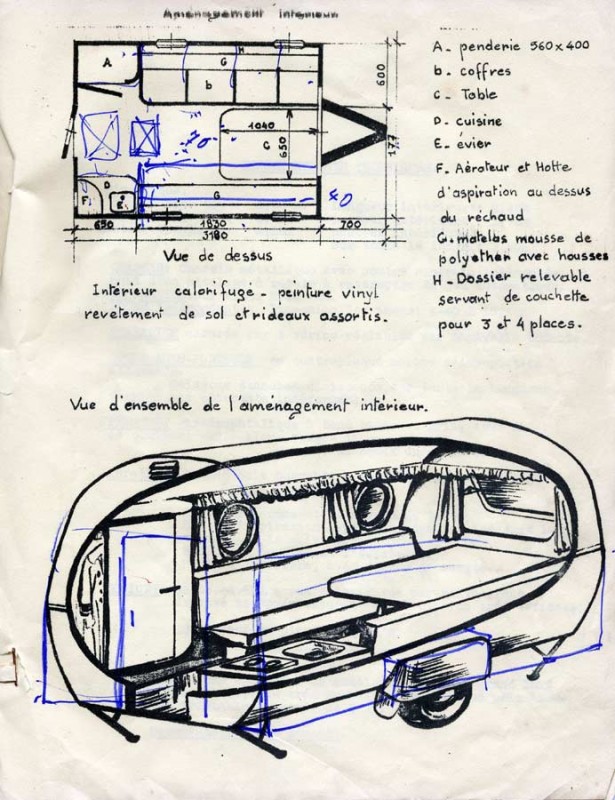 Aménagement intérieur
A
H
G
b
1040
650
C
600
D
F
E
G
40
650
1830
700
3180
Vue de dessus
A_ penderie 560x400
b_ coffres
C_ Table
D_ cuisine
E_ évier
F_ Aérateur et Hotte
d'aspiration au dessus
du réchaud
G_ matelas mousse de
polyether avec housses
H_ Dossier relevable
servant de couchette
pour 3 et 4 places.
Intérieur calorifugé _ peinture vinyl
revêtement de sol et rideaux assortis.
Vue d'ensemble de l'aménagement intérieur.